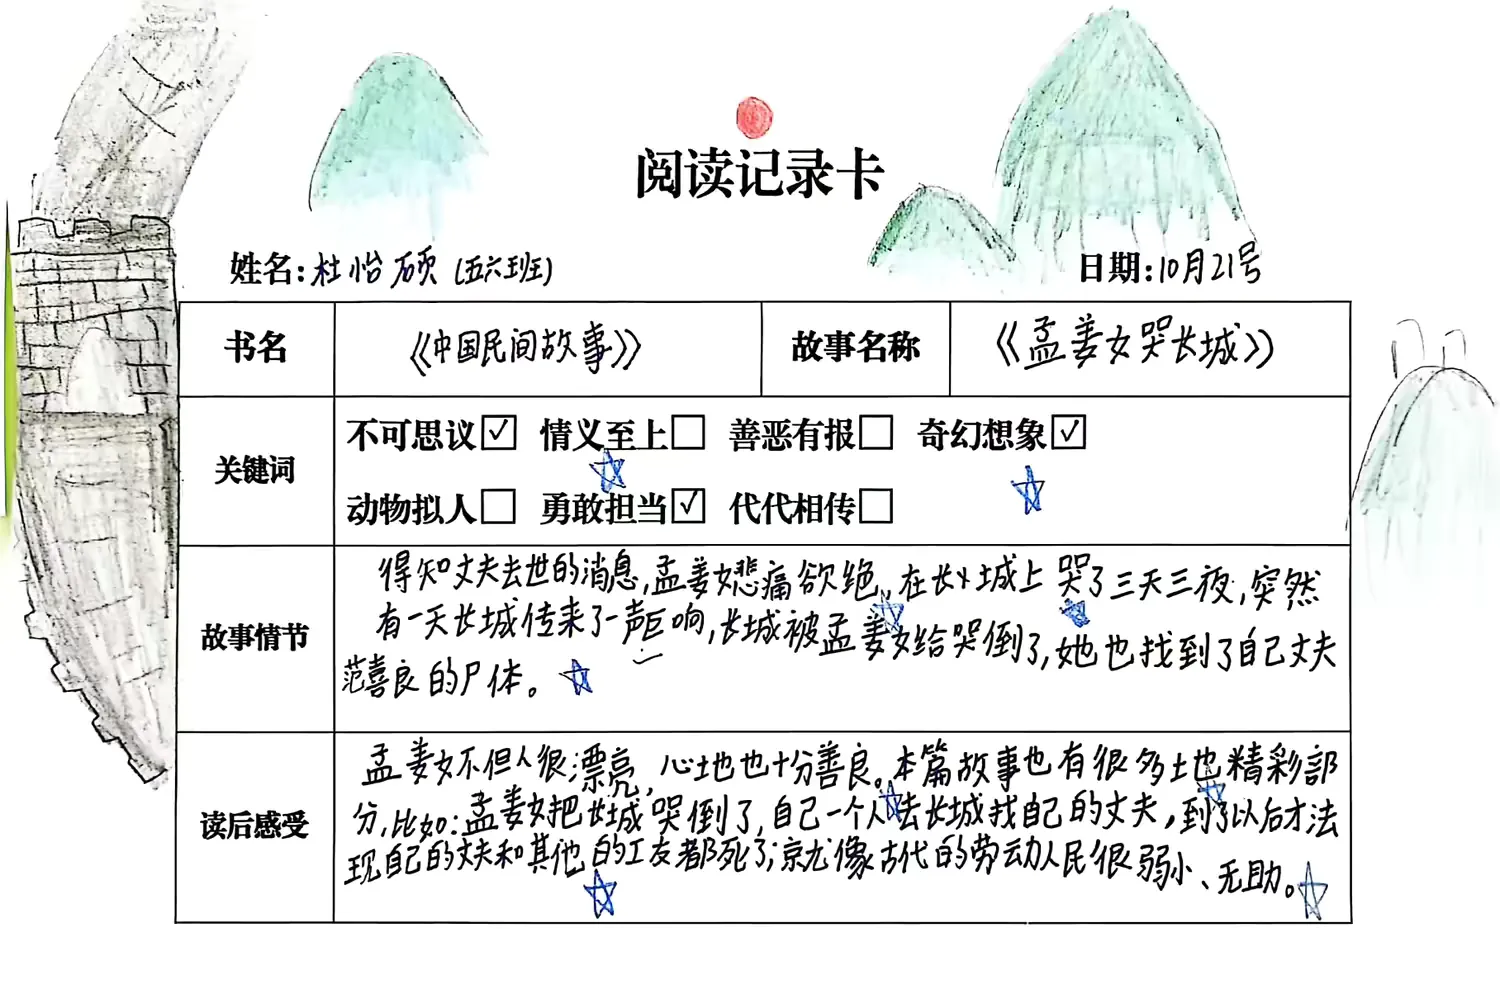 阅读记录卡
姓名:杜怡硕(五六班) 日期:10月21号
书名 《中国民间故事》 故事名称 《孟姜女哭长城》
关键词
不可思议☑ 情义至上☐ 善恶有报☐ 奇幻想象☑
动物拟人☐ 勇敢担当☑ 代代相传☐
故事情节
得知丈夫去世的消息,孟姜女悲痛欲绝,在长城上哭了三天三夜,突然
有一天长城传来了一声巨响,长城被孟姜女给哭倒了,她也找到了自己丈夫
范喜良的尸体。
读后感受
孟姜女不但人很漂亮,心地也十分善良。本篇故事也有很多土地精彩部
分,比如:孟姜女把长城哭倒了,自己一个人去长城找自己的丈夫,到了以后才法
现自己的丈夫和其他的工友都死了;就像古代的劳动人民很弱小、无助。